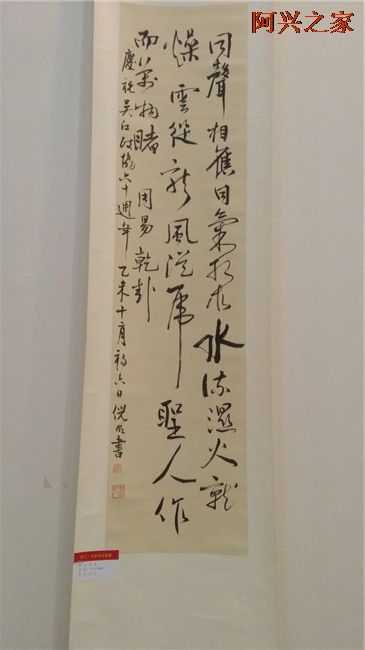 阿兴之家
同聲相應同氣相求水流濕火就
燥雲從龍風從虎聖人作
而萬物睹 周易乾卦
慶祝吳江政協六十週年 乙未十月初六日倪書